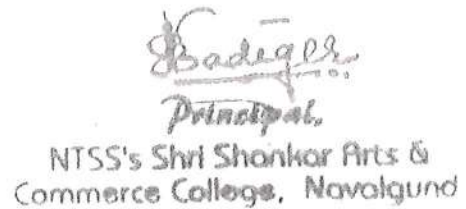 Badiger
Principal,
NTSS's Shri Shankar Arts &
Commerce College, Navalgund